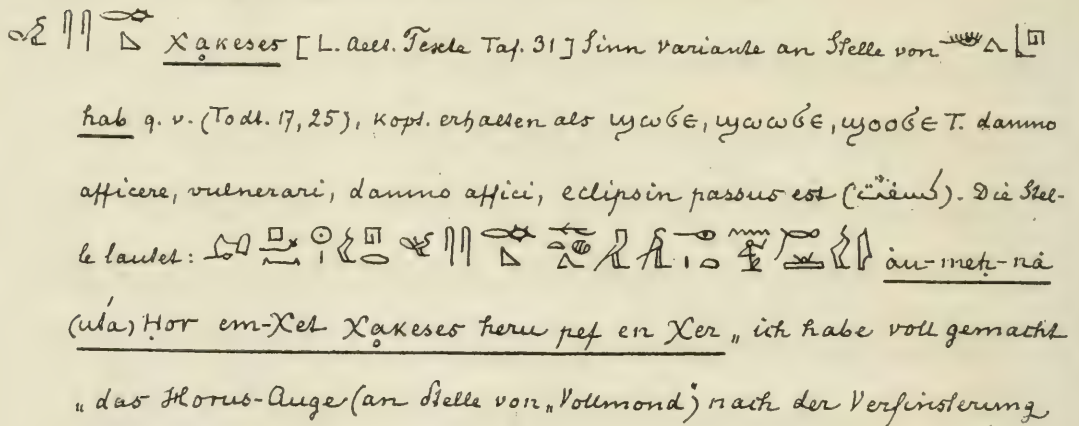 χạkeses [L. aelt. Texte Taf. 31] Sinn variante an Stelle von
hab q. v. (Todt. 17, 25), kopt. erhalten als ϣωϭⲉ, ϣωωϭⲉ, ϣοοϭⲉ T. damno
afficere, vulnerari, damno affici, eclipsin passus est (كسفت). Die Stel-
le lautet: àu-meḥ-nà
(uťa) Ḥor em-χet χạkeses heru pef en χer „ich habe voll gemacht
„das Horus-Auge (an Stelle von „Vollmond") nach der Verfinsterung